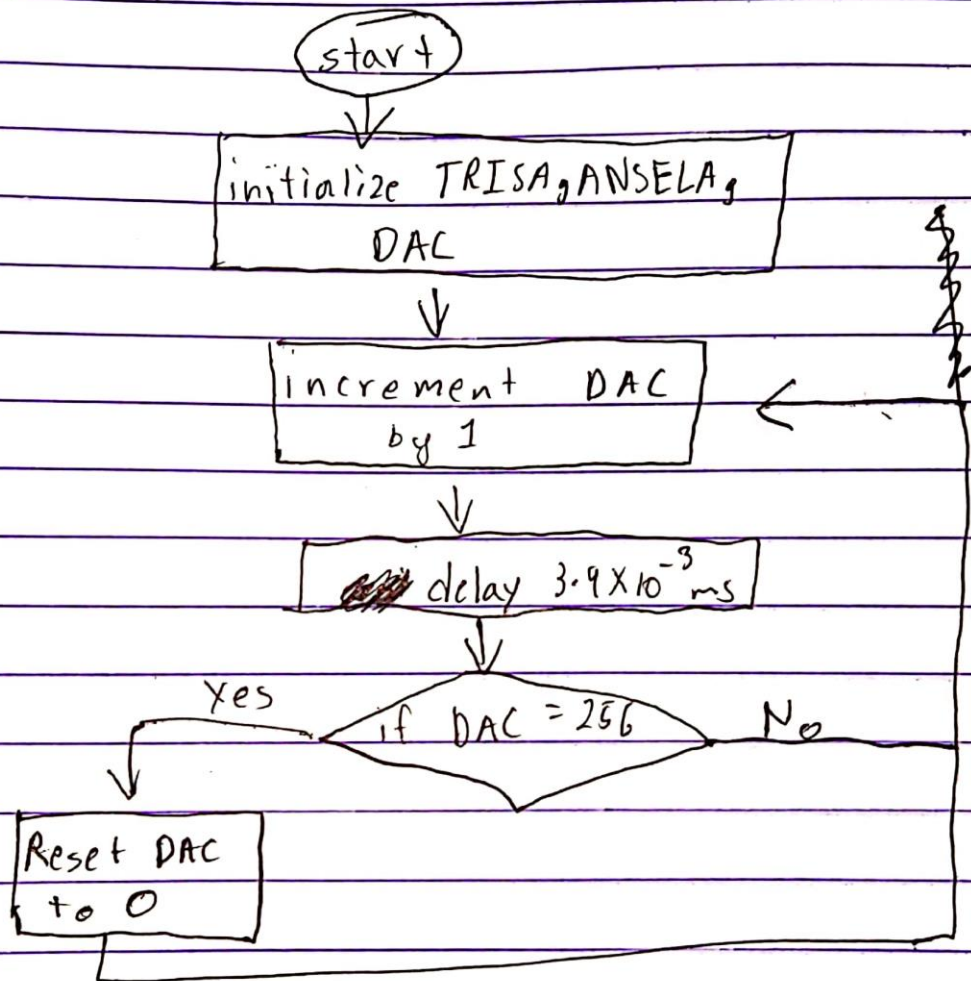 start
initialize TRISA, ANSELA,
DAC
increment DAC
by 1
delay 3.9X10⁻³ ms
if DAC = 256
Yes
No
Reset DAC
to 0